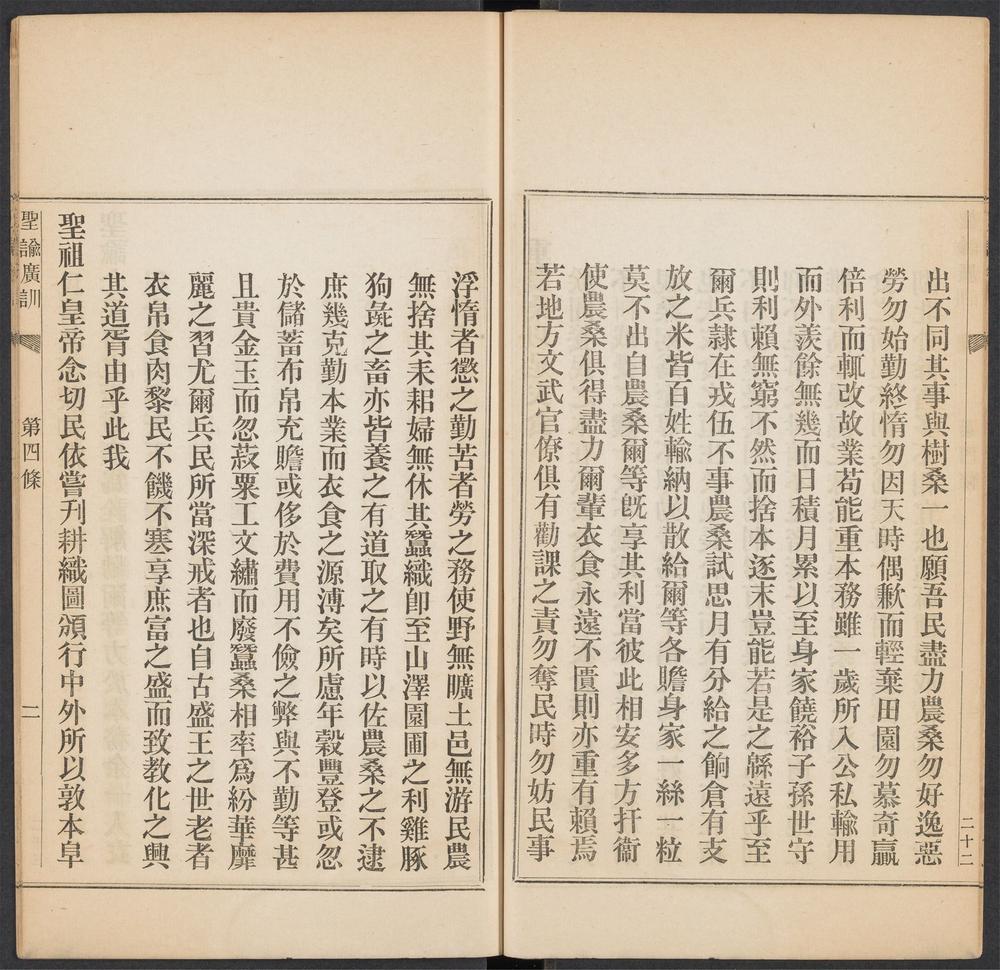 出不同其事與樹桑一也願吾民盡力農桑勿好逸惡
勞勿始勤終惰勿因天時偶歉而輕棄田園勿慕奇贏
倍利而輒改故業苟能重本務雖一歲所入公私輸用
而外羨餘無幾而日積月累以至身家饒裕子孫世守
則利賴無窮不然而捨本逐末豈能若是之緜遠乎至
爾兵隸在戎伍不事農桑試思月有分給之餉倉有支
放之米皆百姓輸納以散給爾等各贍身家一絲一粒
莫不出自農桑爾等旣享其利當彼此相安多方扞衞
使農桑俱得盡力爾輩衣食永遠不匱則亦重有賴焉
若地方文武官僚俱有勸課之責勿奪民時勿妨民事
二十二
浮惰者懲之勤苦者勞之務使野無曠土邑無游民農
無捨其耒耜婦無休其蠶織卽至山澤園圃之利雞豚
狗彘之畜亦皆養之有道取之有時以佐農桑之不逮
庶幾克勤本業而衣食之源溥矣所慮年穀豐登或忽
於儲蓄布帛充贍或侈於費用不儉之弊與不勤等甚
且貴金玉而忽菽粟工文繡而廢蠶桑相率爲紛華靡
麗之習尤爾兵民所當深戒者也自古盛王之世老者
衣帛食肉黎民不饑不寒享庶富之盛而致教化之興
其道胥由乎此我
聖祖仁皇帝念切民依嘗刋耕織圖頒行中外所以敦本阜
聖諭廣訓
第四條
二